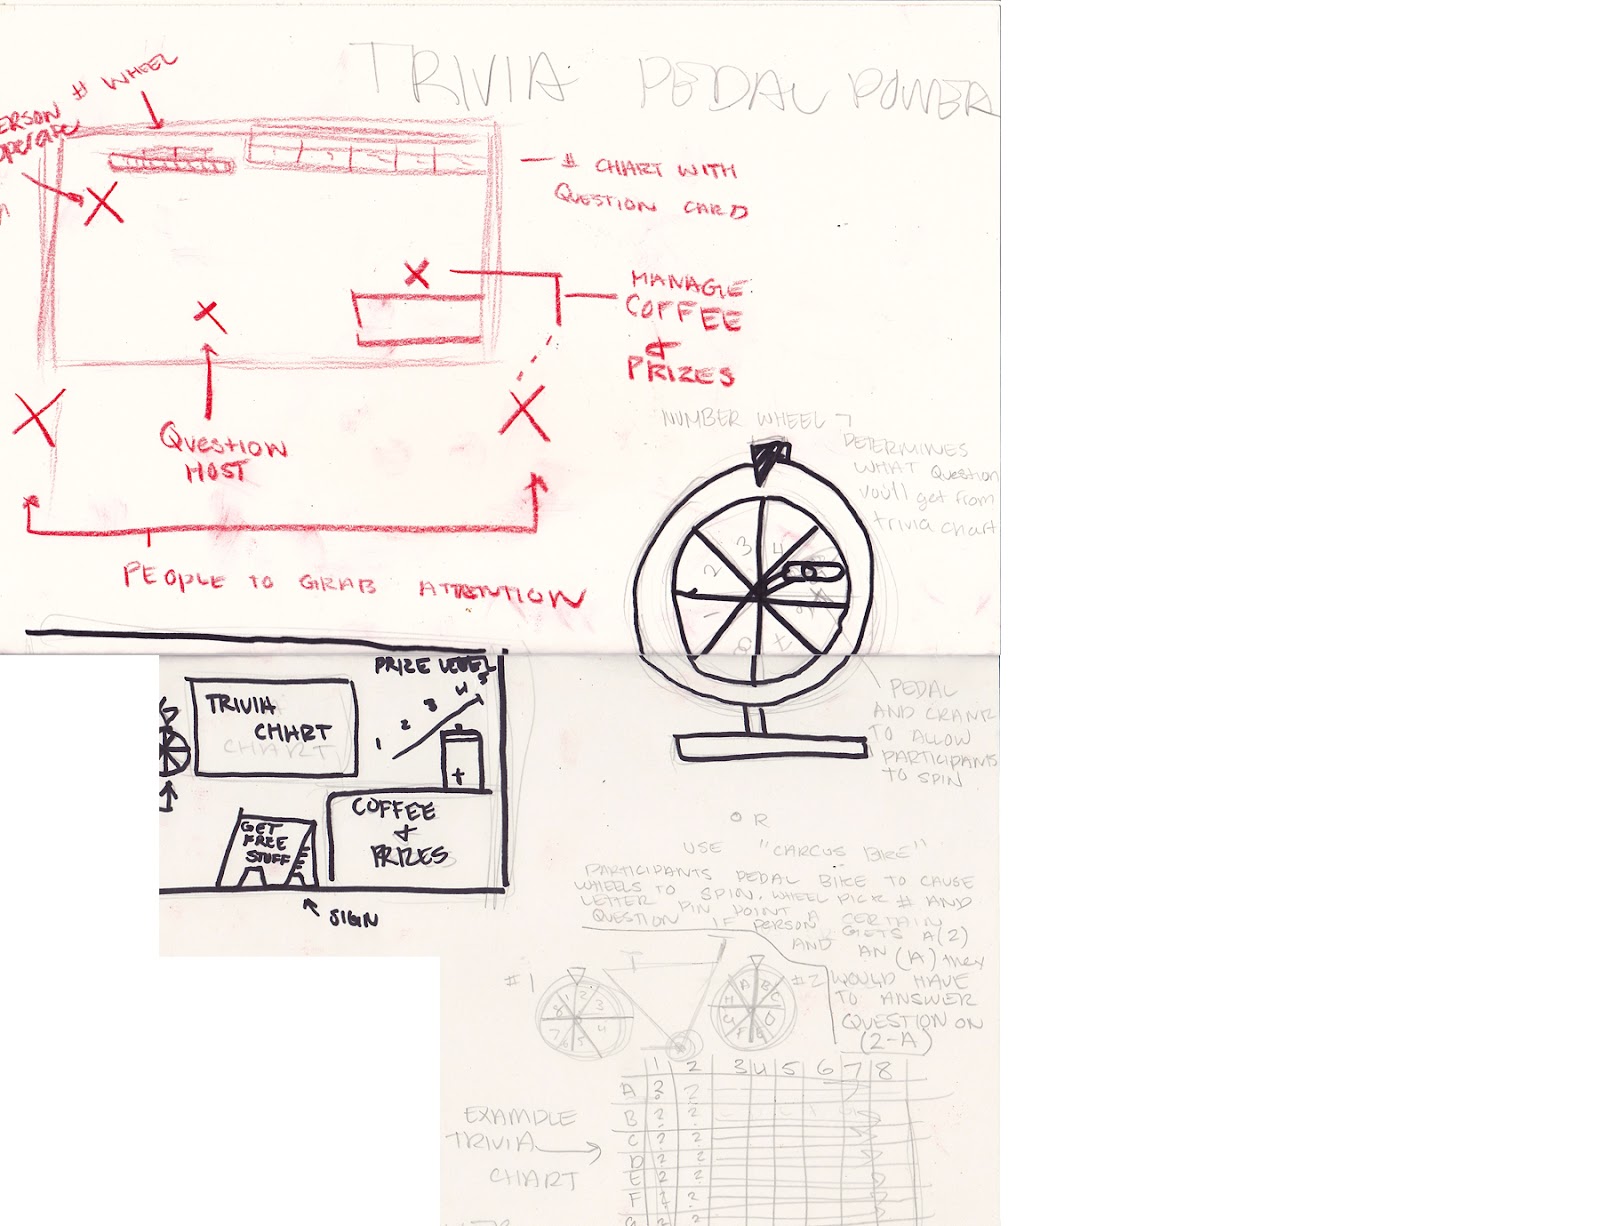 TRIVIA PEDAL POWER
# WHEEL
ERSON
operate
# CHART WITH
QUESTION CARD
MANAGE
COFFEE
&
PRIZES
QUESTION
HOST
PEOPLE TO GRAB ATTENTION
NUMBER WHEEL
DETERMINES
WHAT Question
you'll get from
trivia chart
1
2
3
4
7
8
PEDAL
AND CRANK
TO ALLOW
PARTICIPANTS
TO SPIN
PRIZE LEVEL
1 2 3 4 5
TRIVIA
CHART
CHART
GET
FREE
STUFF
COFFEE
&
PRIZES
SIGN
OR
USE "CARCUS BIKE"
PARTICIPANTS PEDAL BIKE TO CAUSE
WHEELS TO SPIN. WHEEL PICK # AND
LETTER PIN POINT A CERTAIN
QUESTION IF PERSON GETS A (2)
AND AN (A) they
WOULD HAVE
TO ANSWER
QUESTION ON
(2-A)
#1
1 2 3 4 5 6 7 8
#2
A B C D E F G H
EXAMPLE
TRIVIA
CHART
1 2 3 4 5 6 7 8
A ? ?
B ? ?
C ? ?
D ? ?
E ? ?
F ? ?
G ? ?